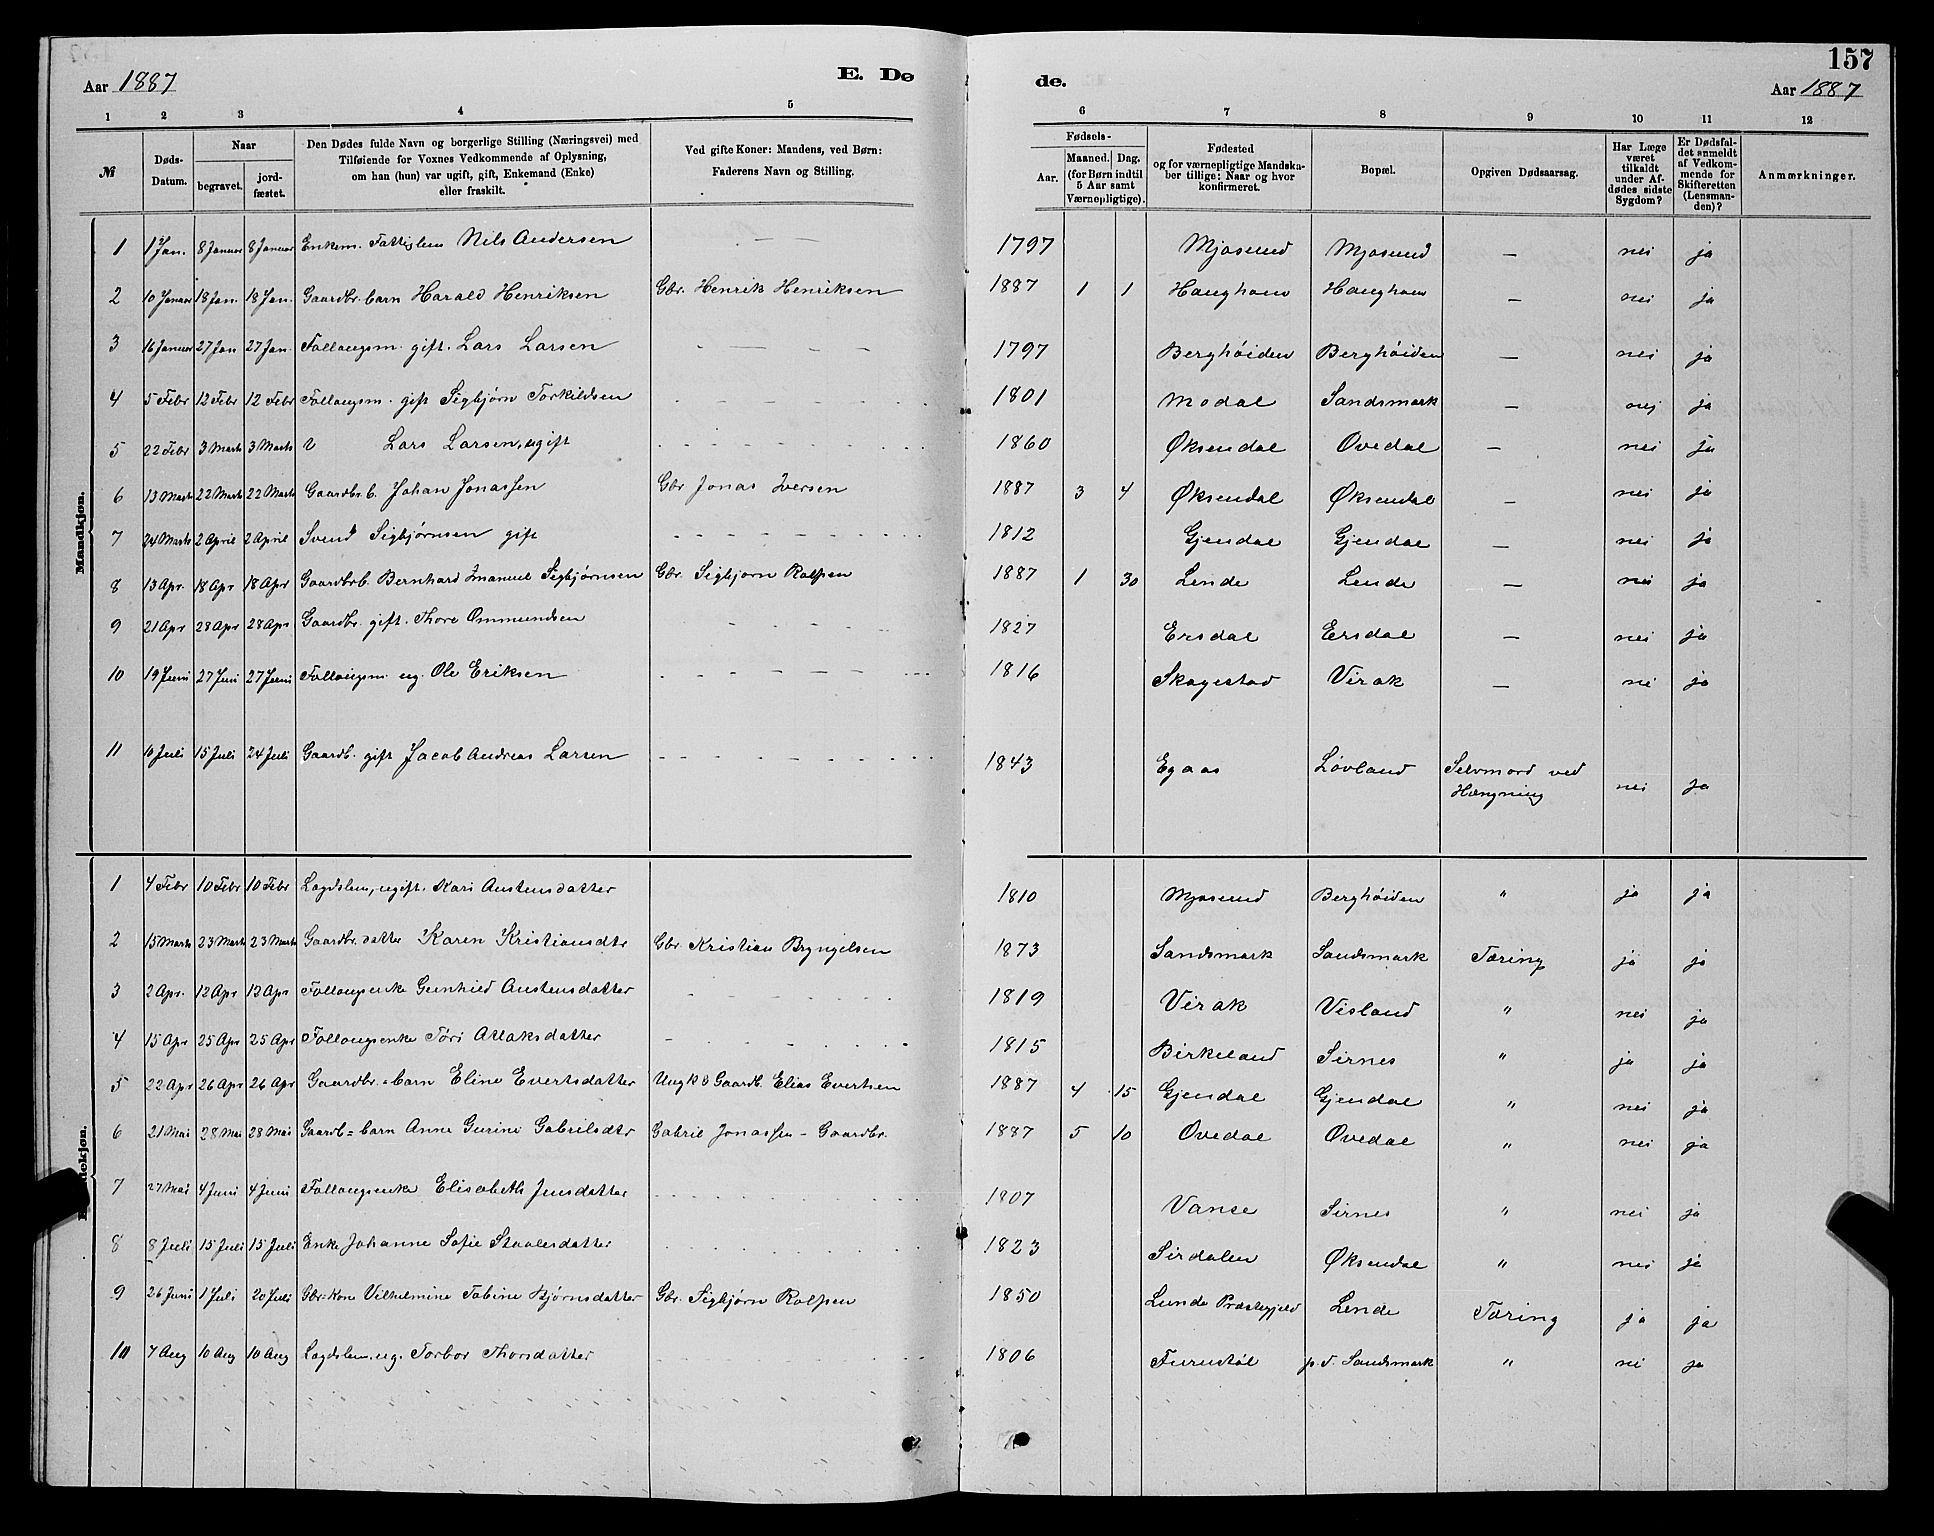 Aar 1887 E. Døde. 157
Aar 1887
1 2 3 4 5 6 7 8 9 10 11 12
№
Døds-Datum.
Naar
begravet.
jordfæstet.
Den Dødes fulde Navn og borgerlige Stilling (Næringsvei) med
Tilføiende for Voxnes Vedkommende af Oplysning,
om han (hun) var ugift, gift, Enkemand (Enke)
eller fraskilt.
Ved gifte Koner: Mandens, ved Børn:
Faderens Navn og Stilling.
Fødsels-
Aar.
Maaned. Dag.
(for Børn indtil
5 Aar samt
Værnepligtige).
Fødested
og for værnepligtige Mandskaber
tillige: Naar og hvor
konfirmeret.
Bopæl.
Opgiven Dødsaarsag.
Har Læge
været
tilkaldt
under Afdødes
sidste
Sygdom?
Er Dødsfaldet
anmeldt
af Vedkommende
for
Skifteretten
(Lensmanden)?
Anmærkninger.
Mandkjøn.
1 1 Jan. 8 Januar 8 Januar Enkem. Fattiglem Nils Andersen — — 1797 Mjosund Mjosund — nei ja
2 10 Januar 18 Jan. 18 Jan. Gaardbr. barn Harald Henriksen Gbr. Henrik Henriksen 1887 1 1 Haughom Haughom — nei ja
3 16 Januar 27 Jan 27 Jan. Follaugsm. gift. Lars Larsen 1797 Berghöiden Berghöiden — nei ja
4 5 Febr 12 Febr 12 Febr Follaugsm. gift Sigbjørn Torkildsen 1801 Modal Sandsmark — nei ja
5 22 Febr 3 Marts 3 Marts Lars Larsen, ugift 1860 Øksendal Ovedal — nei ja
6 13 Marts 22 Marts 22 Marts Gaardbr. b. Johan Jonassen Gbr Jonas Iversen 1887 3 4 Øksendal Øksendal — nei ja
7 24 Marts 2 April 2 April Svend Sigbjørnsen gift 1812 Gjendal Gjendal — nei ja
8 13 Apr. 18 Apr 18 Apr Gaardbrb. Bernhard Imanuel Sigbjørnsen Gbr. Sigbjorn Rolfsen 1887 1 30 Lende Lende — nei ja
9 21 Apr 28 Apr 28 Apr Gaardbr. gift. Thore Ommundsen 1827 Ersdal Ersdal — nei ja
10 19 Juni 27 Juni 27 Juni Follaugsm ug. Ole Eriksen 1816 Skogestad Virak — nei ja
11 10 Juli 15 Juli 24 Juli Gaardb. gift Jacob Andreas Larsen 1843 Egaas Løvland Selvmord ved
Hængning nei ja
1 4 Febr 10 Febr 10 Febr Lægdslem, ugift. Kari Austensdatter 1810 Mjosund Berghöiden " ja ja
2 15 Marts 23 Marts 23 Marts Gaardbr. datter Karen Kristiansdtr Gbr. Kristian Bryngelsen 1873 Sandsmark Sandsmark Tæring ja ja
3 2 Apr. 12 Apr 12 Apr Follaugsenke Gunhild Austensdatter 1819 Virak Visland " nei ja
4 15 Apr 25 Apr 25 Apr Follaugsenke Tori Atlaksdatter 1815 Birkeland Sirnes " ja ja
5 22 Apr 26 Apr 26 Apr Gaardbr.=barn Eline Evertsdatter Ungk & Gaardb. Elias Evertsen 1887 4 15 Gjendal Gjendal " nei ja
6 21 Mai 28 Mai 28 Mai Gaardb=barn Anne Gurine Gabrilsdtr Gabriel Jonassen - Gaardbr. 1887 5 10 Ovedal Øvedal " nei ja
7 27 Mai 4 Juni 4 Juni Follaugsenke Elisabeth Jensdatter 1807 Vanse Sirnes " nei ja
8 8 Juli 15 Juli 15 Juli Enke Johanne Sofie Staalesdatter 1823 Sirdalen Øksendal " nei ja
9 26 Juni 1 Juli 20 Juli Gbr=kone Vilhelmine Tobine Bjørnsdatter Gbr. Sigbjørn Rolfsen 1850 Lunde Præstegjeld Lende Tæring ja ja
10 7 Aug 10 Aug 10 Aug Lægdslem, ug. Torbor Thorsdatter 1806 Furustøl p.t. Sandsmark " nei ja